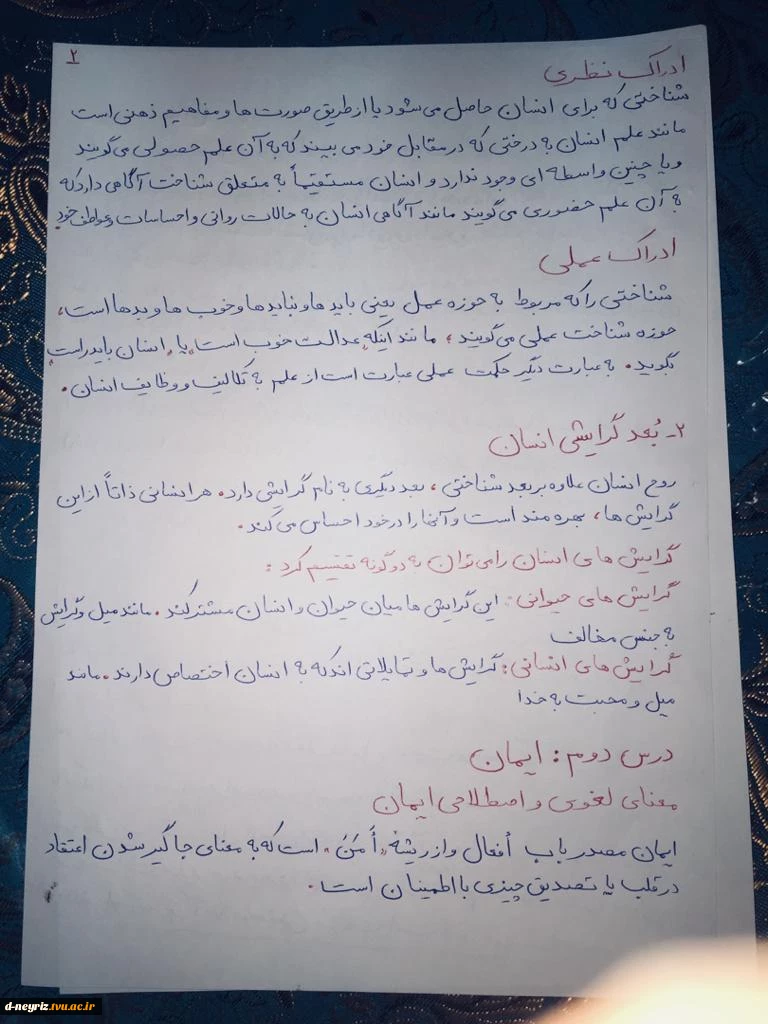 ۲
ادراک نظری
شناختی که برای انسان حاصل می‌شود یا از طریق صورت‌ها و مفاهیم ذهنی است
مانند علم انسان به درختی که در مقابل خود می بیند که به آن علم حصولی می‌گویند
و یا چنین واسطه ای وجود ندارد و انسان مستقیماً به متعلق شناخت آگاهی دارد که
به آن علم حضوری می‌گویند مانند آگاهی انسان به حالات روانی و احساسات و عواطف خود
ادراک عملی
شناختی را که مربوط به حوزه عمل یعنی باید ها و نباید ها و خوب ها و بدها است،
حوزه شناخت عملی می‌گویند، مانند اینکه «عدالت خوب است» یا «انسان باید راست
بگوید». به عبارت دیگر حکمت عملی عبارت است از علم به تکالیف و وظایف انسان.
۲- بُعد گرایشی انسان
روح انسان علاوه بر بعد شناختی، بعد دیگری به نام گرایشی دارد. هر انسانی ذاتاً از این
گرایش ها، بهره مند است و آنها را در خود احساس می کند.
گرایش های انسان را می توان به دو گونه تقسیم کرد:
گرایش های حیوانی: این گرایش ها میان حیوان و انسان مشترکند. مانند میل و گرایش
به جنس مخالف
گرایش های انسانی: گرایش ها و تمایلاتی اند که به انسان اختصاص دارند. مانند
میل و محبت به خدا
درس دوم: ایمان
معنای لغوی و اصطلاحی ایمان
ایمان مصدر باب أفعال و از ریشهٔ «أَمَنَ» است که به معنای جاگیر شدن اعتقاد
در قلب یا تصدیق چیزی با اطمینان است.
d-neyriz.tvu.ac.ir